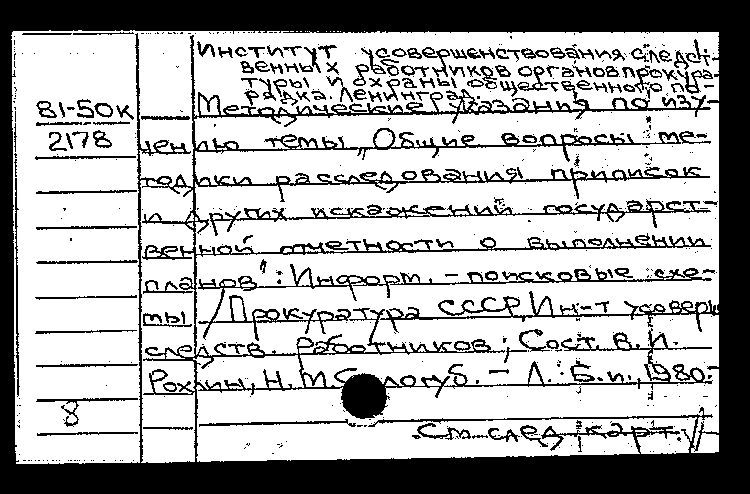 Институт усовершенствования следст-
венных работников органов прокура-
туры и охраны общественного по-
рядка. Ленинград.
81-50К Методические указания по изу-
2178 чению темы „Общие вопросы ме-
тодики расследования приписок
и других искажений государст-
венной отчетности о выполнении
планов": Информ.-поисковые схе-
мы / Прокуратура СССР, Ин-т усоверш
следств. работников; Сост. В. И.
Рохлин, Н. М. – Л.: Б.и., 1980.-
8
См след карт. //